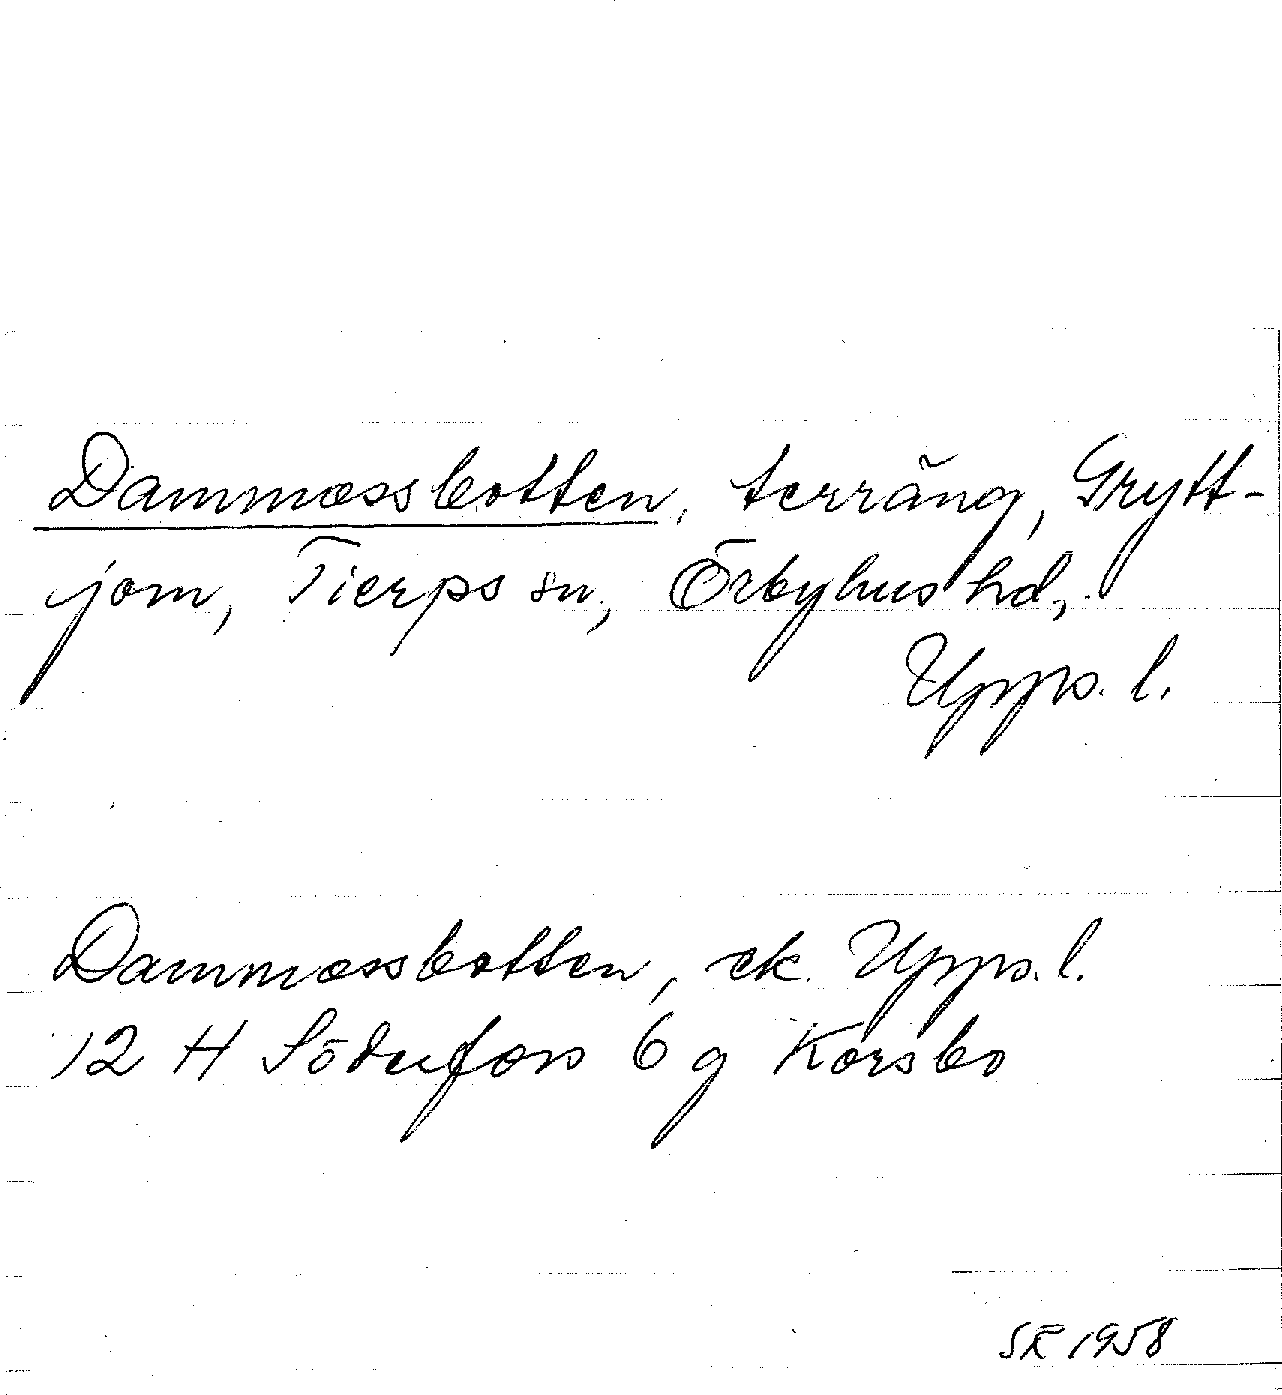 Dammossbotten, terräng, Grytt-
jom, Tierps sn, Örbyhus hd,
Upps. l.
Dammossbotten, ek. Upps. l.
12 H Söderfors 6 g Korsbo
SK 1958